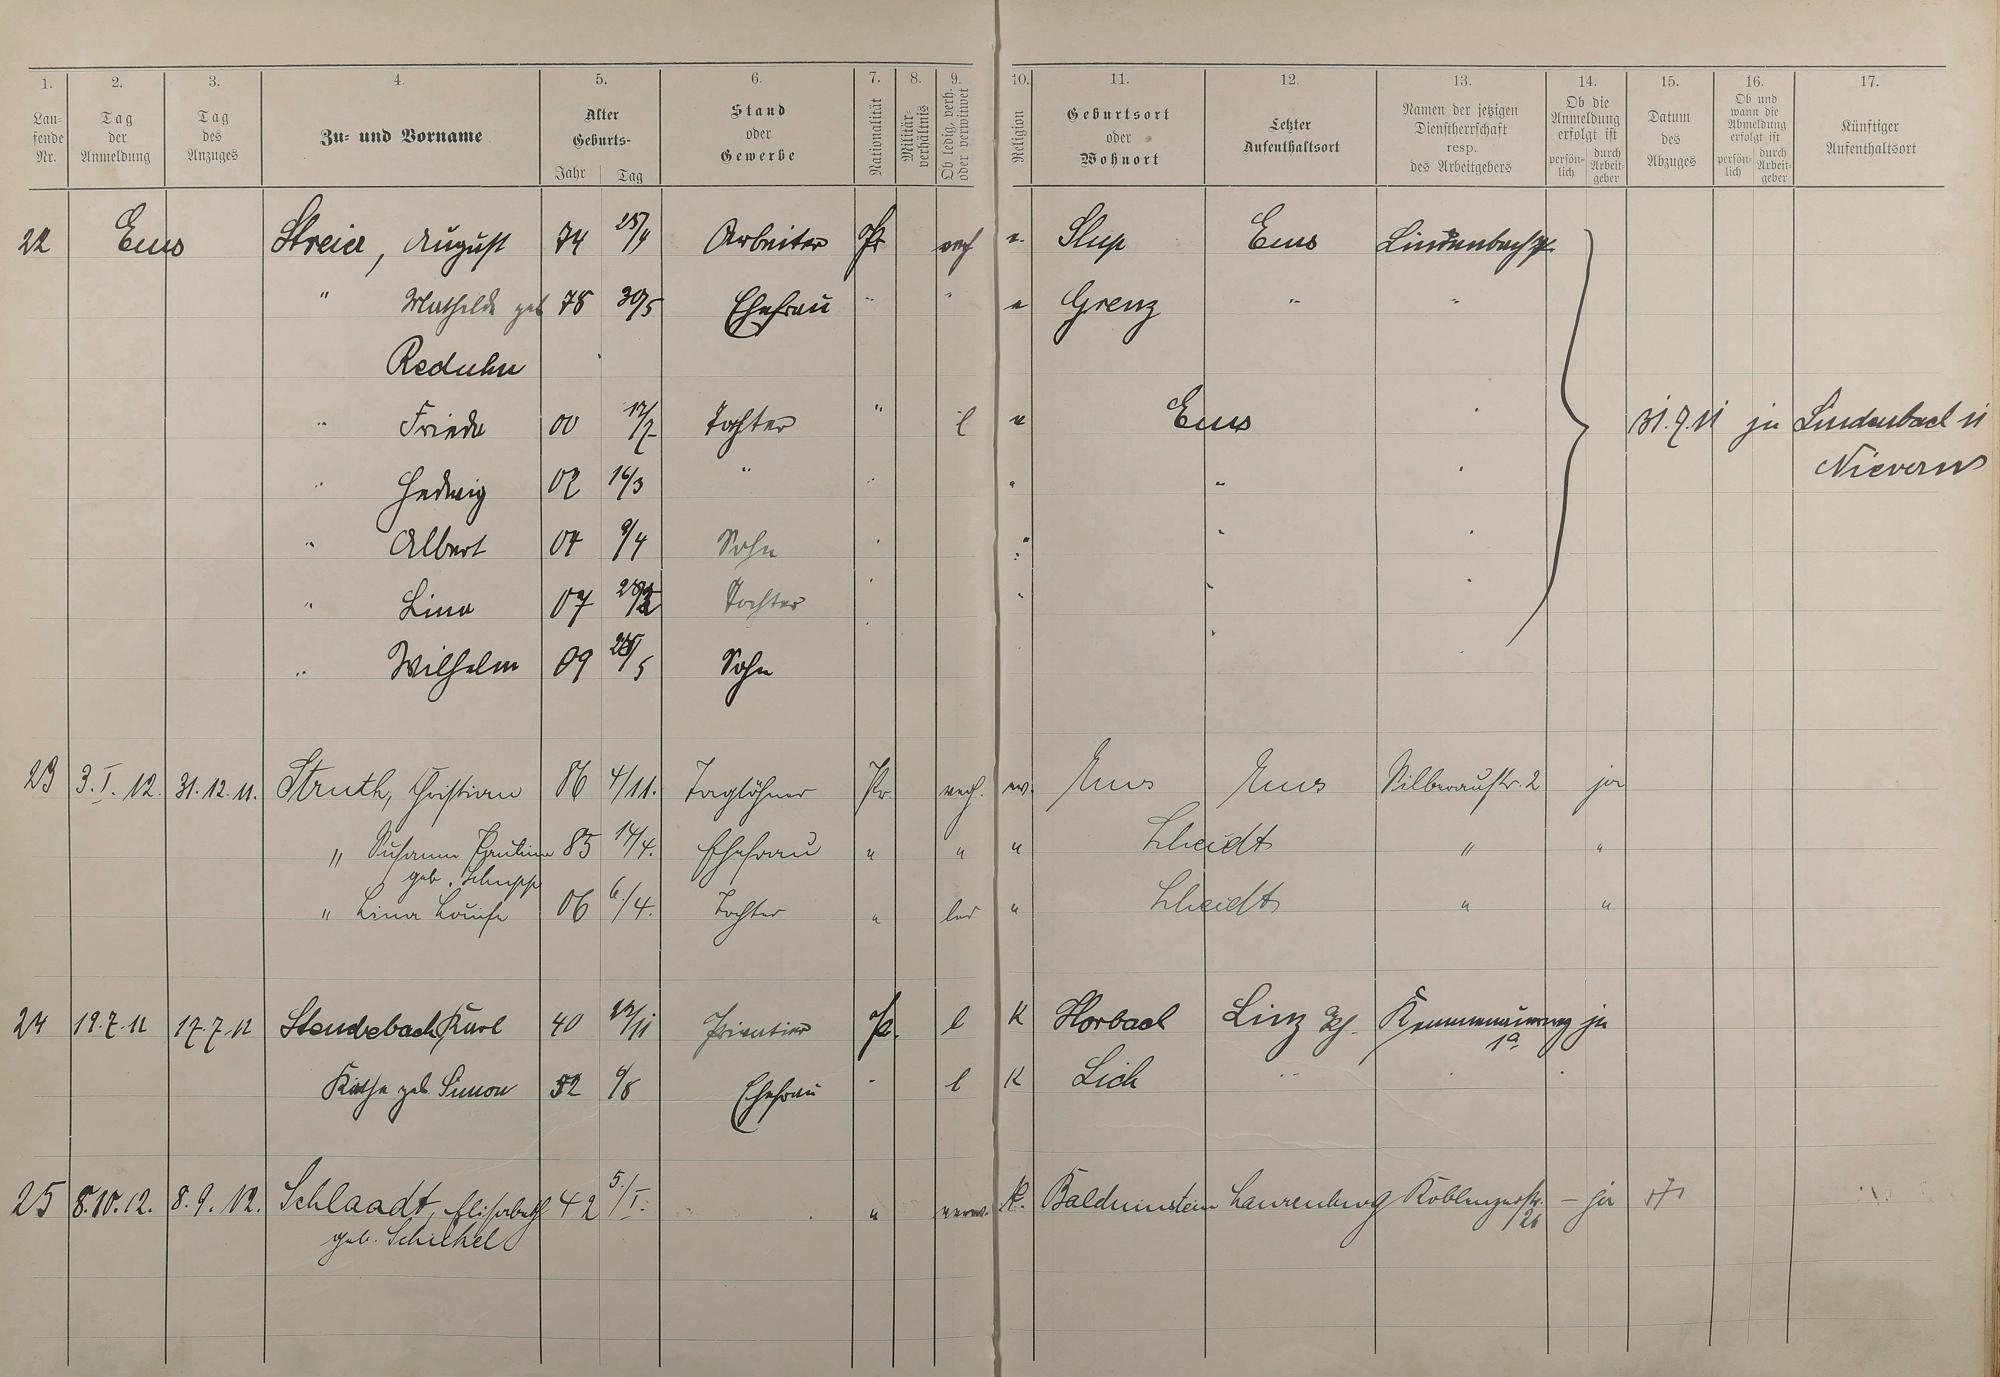 1. 2. 3. 4. 5. 6. 7. 8. 9. 10. 11. 12. 13. 14. 15. 16. 17.
Lau-
fende
Nr.
Tag
der
Anmeldung
Tag
des
Anzuges
Zu- und Vorname
Alter
Geburts-
Jahr Tag
Stand
oder
Gewerbe
Nationalität
Militär-
verhältnis
Ob ledig, verh.
oder verwitwet
Religion
Geburtsort
oder
Wohnort
Letzter
Aufenthaltsort
Namen der jetzigen
Dienstherrschaft
resp.
des Arbeitgebers
Ob die
Anmeldung
erfolgt ist
persön-
lich
durch
Arbeit-
geber
Datum
des
Abzuges
Ob und
wann die
Abmeldung
erfolgt ist
persön-
lich
durch
Arbeit-
geber
Künftiger
Aufenthaltsort
22 Ems Streier, August 74 25/4 Arbeiter Pr verh e. Slup Ems Lindenbach
" Mathilde geb 78 30/5 Ehefrau " " e Grenz " "
Reduhn
" Frieda 00 17/2 Tochter " l e Ems 31.7.11 ja Lindenbach
Nievern
" Hedwig 02 16/3 " " " "
" Albert 04 9/4 Sohn " " "
" Lina 07 Tochter " " "
" Wilhelm 09 Sohn
23 3.I.12. 31.12.11. Struth, Christian 86 4/11. Taglöhner Pr. verh. ev. Ems Ems Silberaustr. 2 ja
" Susanna Pauline 85 14/4. Ehefrau " " " Scheidt " "
geb. Schupp
" Lina Louise 06 6./4. Tochter " led " Scheidt " "
24 19.7.12 17.7.12 Stendebach Karl 40 Privatier Pr. l K Horbach Linz Kemmenauerweg ja
1a
Käthe geb. Simon 52 Ehefrau " l K Lich " "
25 8.10.12. 8.9.12. Schlaadt, Elisabeth 42 5./I. " verw. K. Balduinstein Laurenburg Koblenzerstr. – ja
geb. Schickel
/26